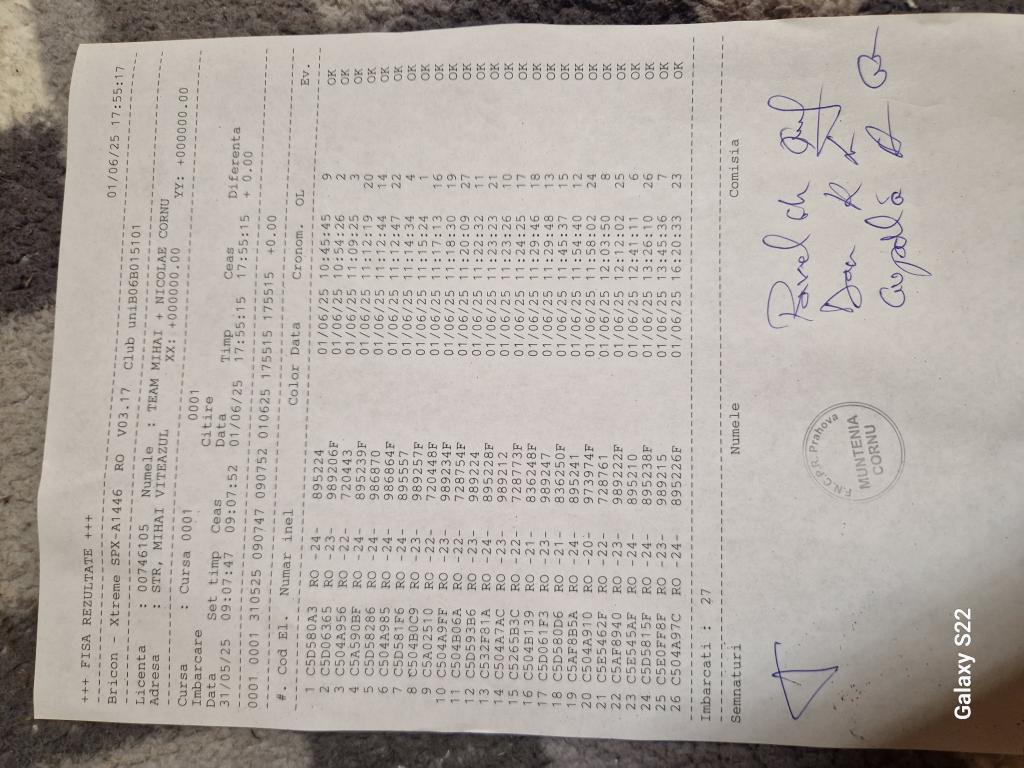 +++ FISA REZULTATE +++
Bricon - Xtreme SPX-A1446 RO V03.17 Club uniB06B015101 01/06/25 17:55:17
Licenta : 00746105 Numele : TEAM MIHAI + NICOLAE CORNU
Adresa : STR, MIHAI VITEAZUL XX: +000000.00 YY: +000000.00
Cursa : Cursa 0001 0001
Imbarcare Citire
Data Set timp Ceas Data Timp Ceas Diferenta
31/05/25 09:07:47 09:07:52 01/06/25 17:55:15 17:55:15 + 0.00
0001 0001 310525 090747 090752 010625 175515 175515 +0.00
#. Cod El. Numar inel Color Data Cronom. OL Ev.
1 C5D580A3 RO -24- 895224 01/06/25 10:45:45 9 OK
2 C5D06365 RO -23- 989206F 01/06/25 10:54:26 2 OK
3 C504A956 RO -22- 720443 01/06/25 11:09:25 3 OK
4 C5A590BF RO -24- 895239F 01/06/25 11:12:19 20 OK
5 C5D58286 RO -24- 986870 01/06/25 11:12:44 14 OK
6 C504A985 RO -24- 986864F 01/06/25 11:12:47 22 OK
7 C5D581F6 RO -24- 895557 01/06/25 11:14:34 4 OK
8 C504B0C9 RO -23- 989257F 01/06/25 11:15:24 1 OK
9 C5A02510 RO -22- 720448F 01/06/25 11:17:13 16 OK
10 C504A9FF RO -23- 989234F 01/06/25 11:18:30 19 OK
11 C504B06A RO -22- 728754F 01/06/25 11:20:09 27 OK
12 C5D593B6 RO -23- 989224 01/06/25 11:22:32 11 OK
13 C532F81A RO -24- 895228F 01/06/25 11:23:23 21 OK
14 C504A7AC RO -23- 989212 01/06/25 11:23:26 10 OK
15 C5265B3C RO -22- 728773F 01/06/25 11:24:25 17 OK
16 C504B139 RO -21- 836248F 01/06/25 11:29:46 18 OK
17 C5D061F3 RO -23- 989247 01/06/25 11:29:48 13 OK
18 C5D580D6 RO -21- 836250F 01/06/25 11:45:37 15 OK
19 C5AF8B5A RO -24- 895241 01/06/25 11:54:40 12 OK
20 C504A910 RO -20- 973974F 01/06/25 11:58:02 24 OK
21 C5E5462F RO -22- 728761 01/06/25 12:03:50 8 OK
22 C5AF8940 RO -23- 989222F 01/06/25 12:12:02 25 OK
23 C5E545AF RO -24- 895210 01/06/25 12:41:11 6 OK
24 C5D5815F RO -24- 895238F 01/06/25 13:26:10 26 OK
25 C5E0FF8F RO -23- 989215 01/06/25 13:45:36 7 OK
26 C504A97C RO -24- 895226F 01/06/25 16:20:33 23 OK
Imbarcati : 27
Semnaturi Numele Comisia
F.N.C.P.R. Prahova
MUNTENIA
CORNU
Galaxy S22